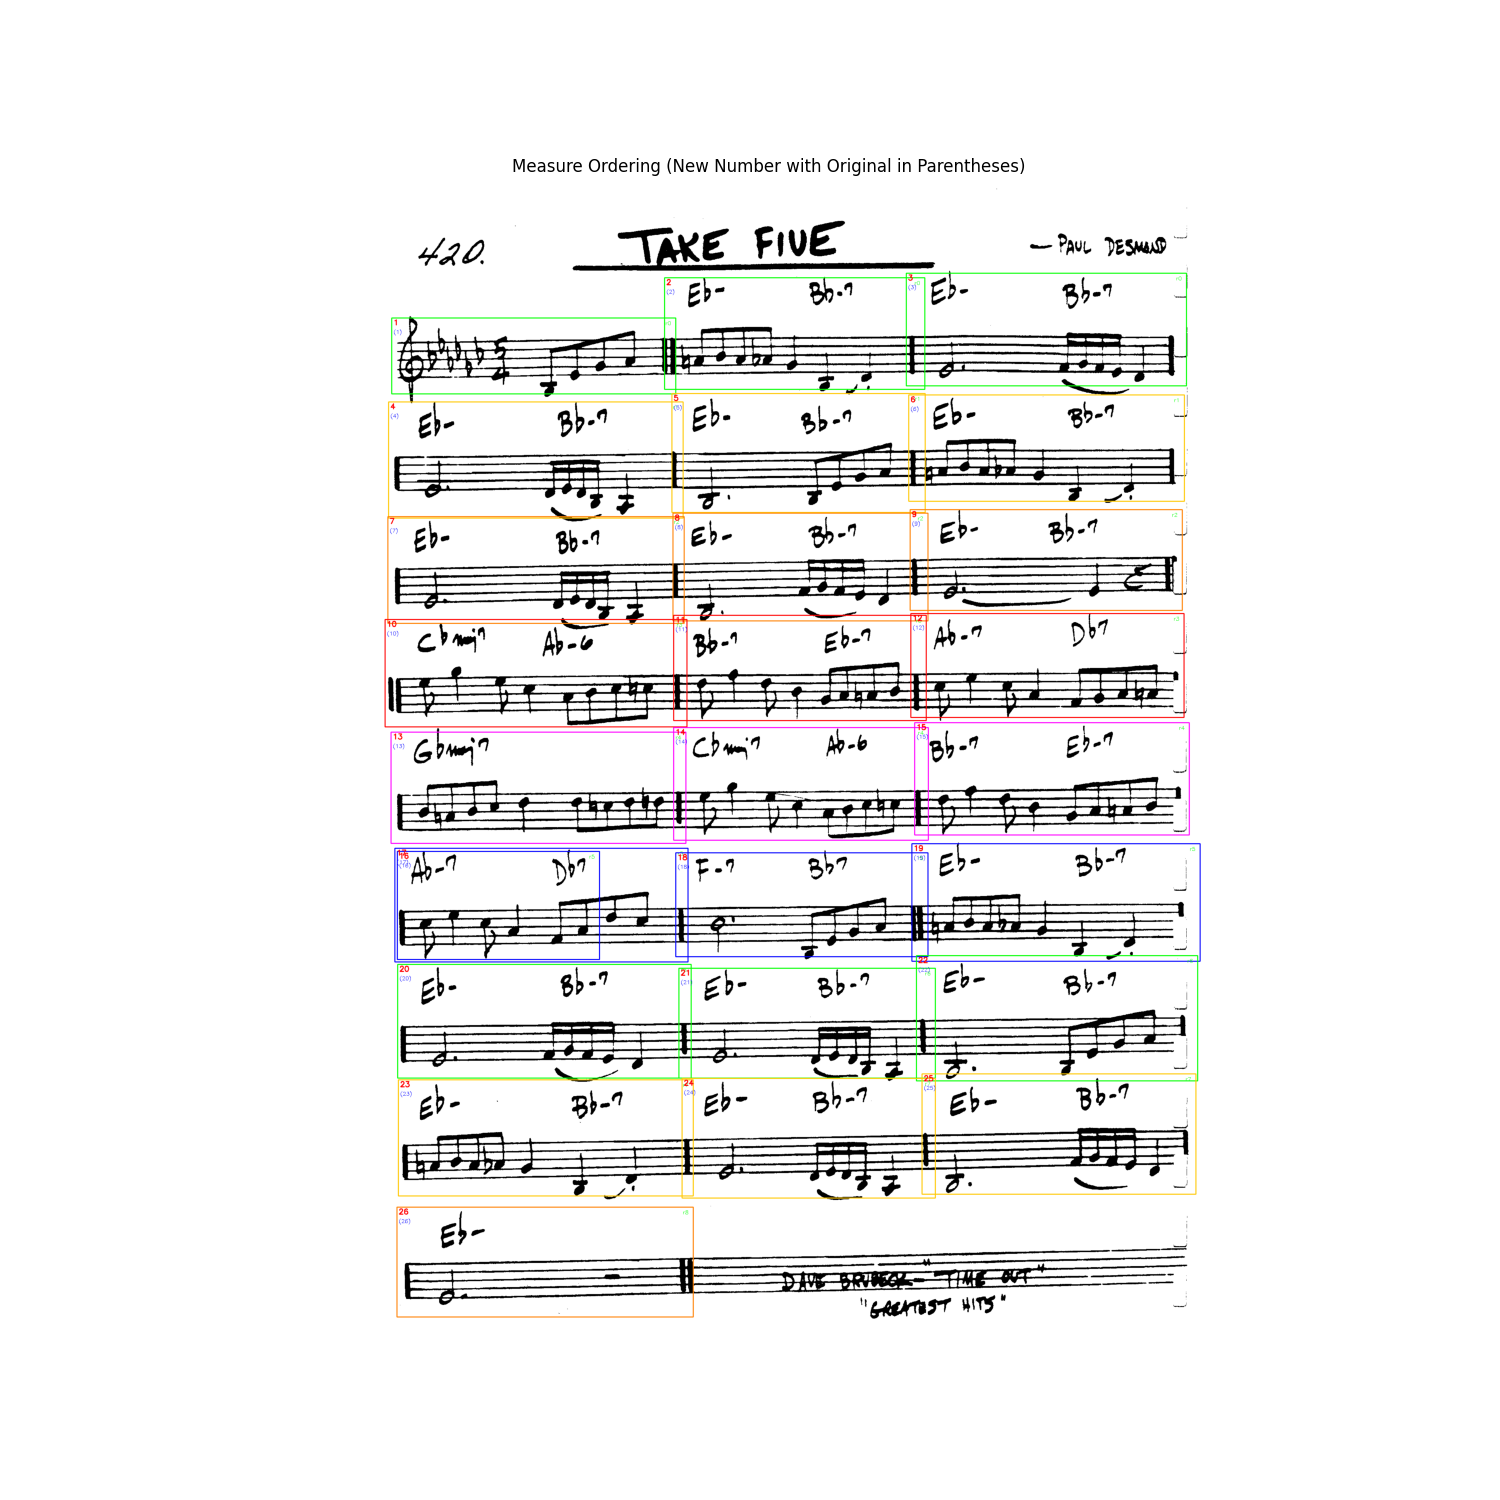 Measure Ordering (New Number with Original in Parentheses)
420. TAKE FIVE — PAUL DESMOND
2 (2) Eb- Bb-7 3 (3) Eb- Bb-7
1 (1) 5/4
4 (4) Eb- Bb-7 5 (5) Eb- Bb-7 6 (6) Eb- Bb-7
7 (7) Eb- Bb-7 8 (8) Eb- Bb-7 9 (9) Eb- Bb-7
10 (10) Cbmaj7 Ab-6 11 (11) Bb-7 Eb-7 12 (12) Ab-7 Db7
13 (13) Gbmaj7 14 (14) Cbmaj7 Ab-6 15 (15) Bb-7 Eb-7
Ab-7 Db7 18 (18) F-7 Bb7 19 (19) Eb- Bb-7
20 (20) Eb- Bb-7 21 (21) Eb- Bb-7 22 (22) Eb- Bb-7
23 (23) Eb- Bb-7 24 (24) Eb- Bb-7 25 (25) Eb- Bb-7
26 (26) Eb-
DAVE BRUBECK - "TIME OUT"
"GREATEST HITS"